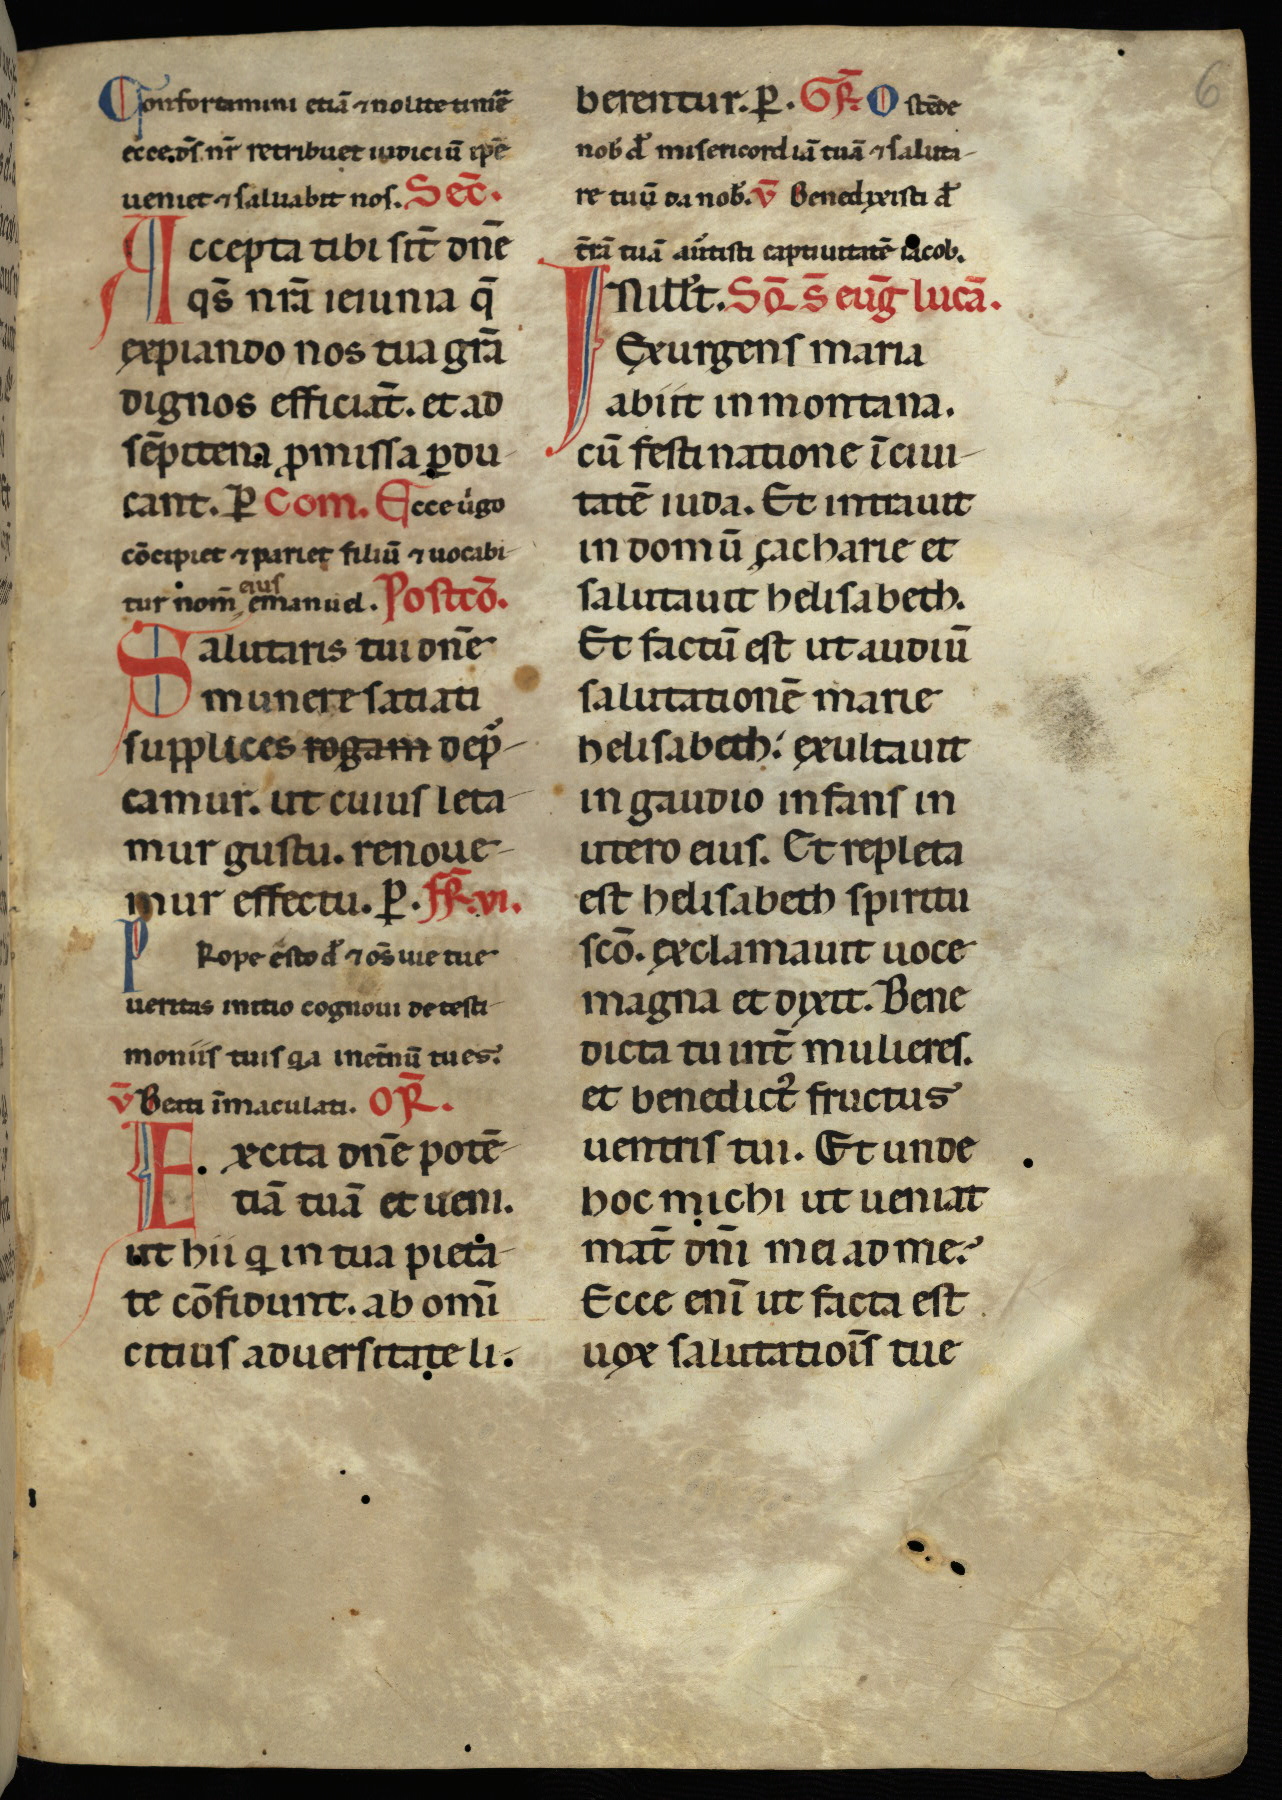 Confortamini etiā ⁊ nolite timē
ecce. ds̄. nr̄ retribuet iudiciū ip̄e
ueniet ⁊ saluabit nos. Sec̄.
Accepta tibi sit̄ dn̄e
qs̄ nr̄ā ieiunia q̄
expiando nos tua gr̄ā
dignos efficiāt. et ad
sēpitena ꝓmissa ꝑdu
cant. ꝑ Com. Ecce uͥgo
cōcipiet ⁊ pariet filiū ⁊ uocabi
tur nom̄ eius emanuel. Postcō.
Salutaris tui dn̄e
munere satiati
supplices rogam dep̄
camur. ut cuius leta
mur gustu. renoue
mur effectu. ꝑ. Fr̄. vi.
PRope esto d̄ ⁊ om̄s uie tue
ueritas initio cognoui de testi
moniis tuis qa inet̄nū tu es.
v̄ Beati īmaculati. Or̄.
Excita dn̄e potē
tiā tuā et ueni.
ut hii qͥ in tua pieta
te cōfidunt. ab omī
citius aduersitate li.
berentur. ꝑ. Gr̄. Ostēde
nob̄ d̄ misericordiā tuā ⁊ saluta
re tuū da nob̄. v̄ Benedixisti d̄
t̄rā tuā au̾tisti captiuitatē iacob.
INill̄t. Sq̄ s̄ euḡ lucā.
Exurgens maria
abiit in montana.
cū festinatione ī ciui
tatē iuda. Et intrauit
in domū çacharie et
salutauit helisabeth.
Et factū est ut audiū
salutationē marie
helisabeth. exultauit
in gaudio infans in
utero eius. Et repleta
est helisabeth spiritu
scō. exclamauit uoce
magna et dixit. Bene
dicta tu int̄ mulieres.
et benedictꝰ fructus
uentris tui. Et unde
hoc michi ut ueniat
mat̄ dn̄i mei ad me.
Ecce enī ut facta est
uox salutatiōis tue
6